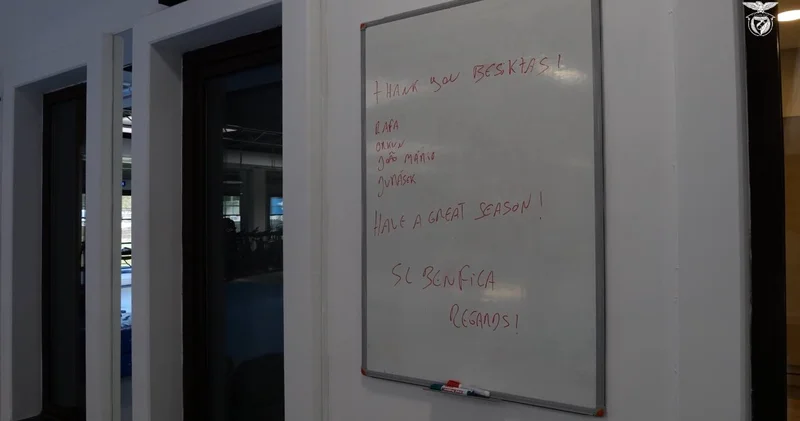 THANK YOU BESIKTAS!
RAFA
ORKUN
JOÃO MÁRIO
JURÁSEK
HAVE A GREAT SEASON!
SL BENFICA
REGARDS!